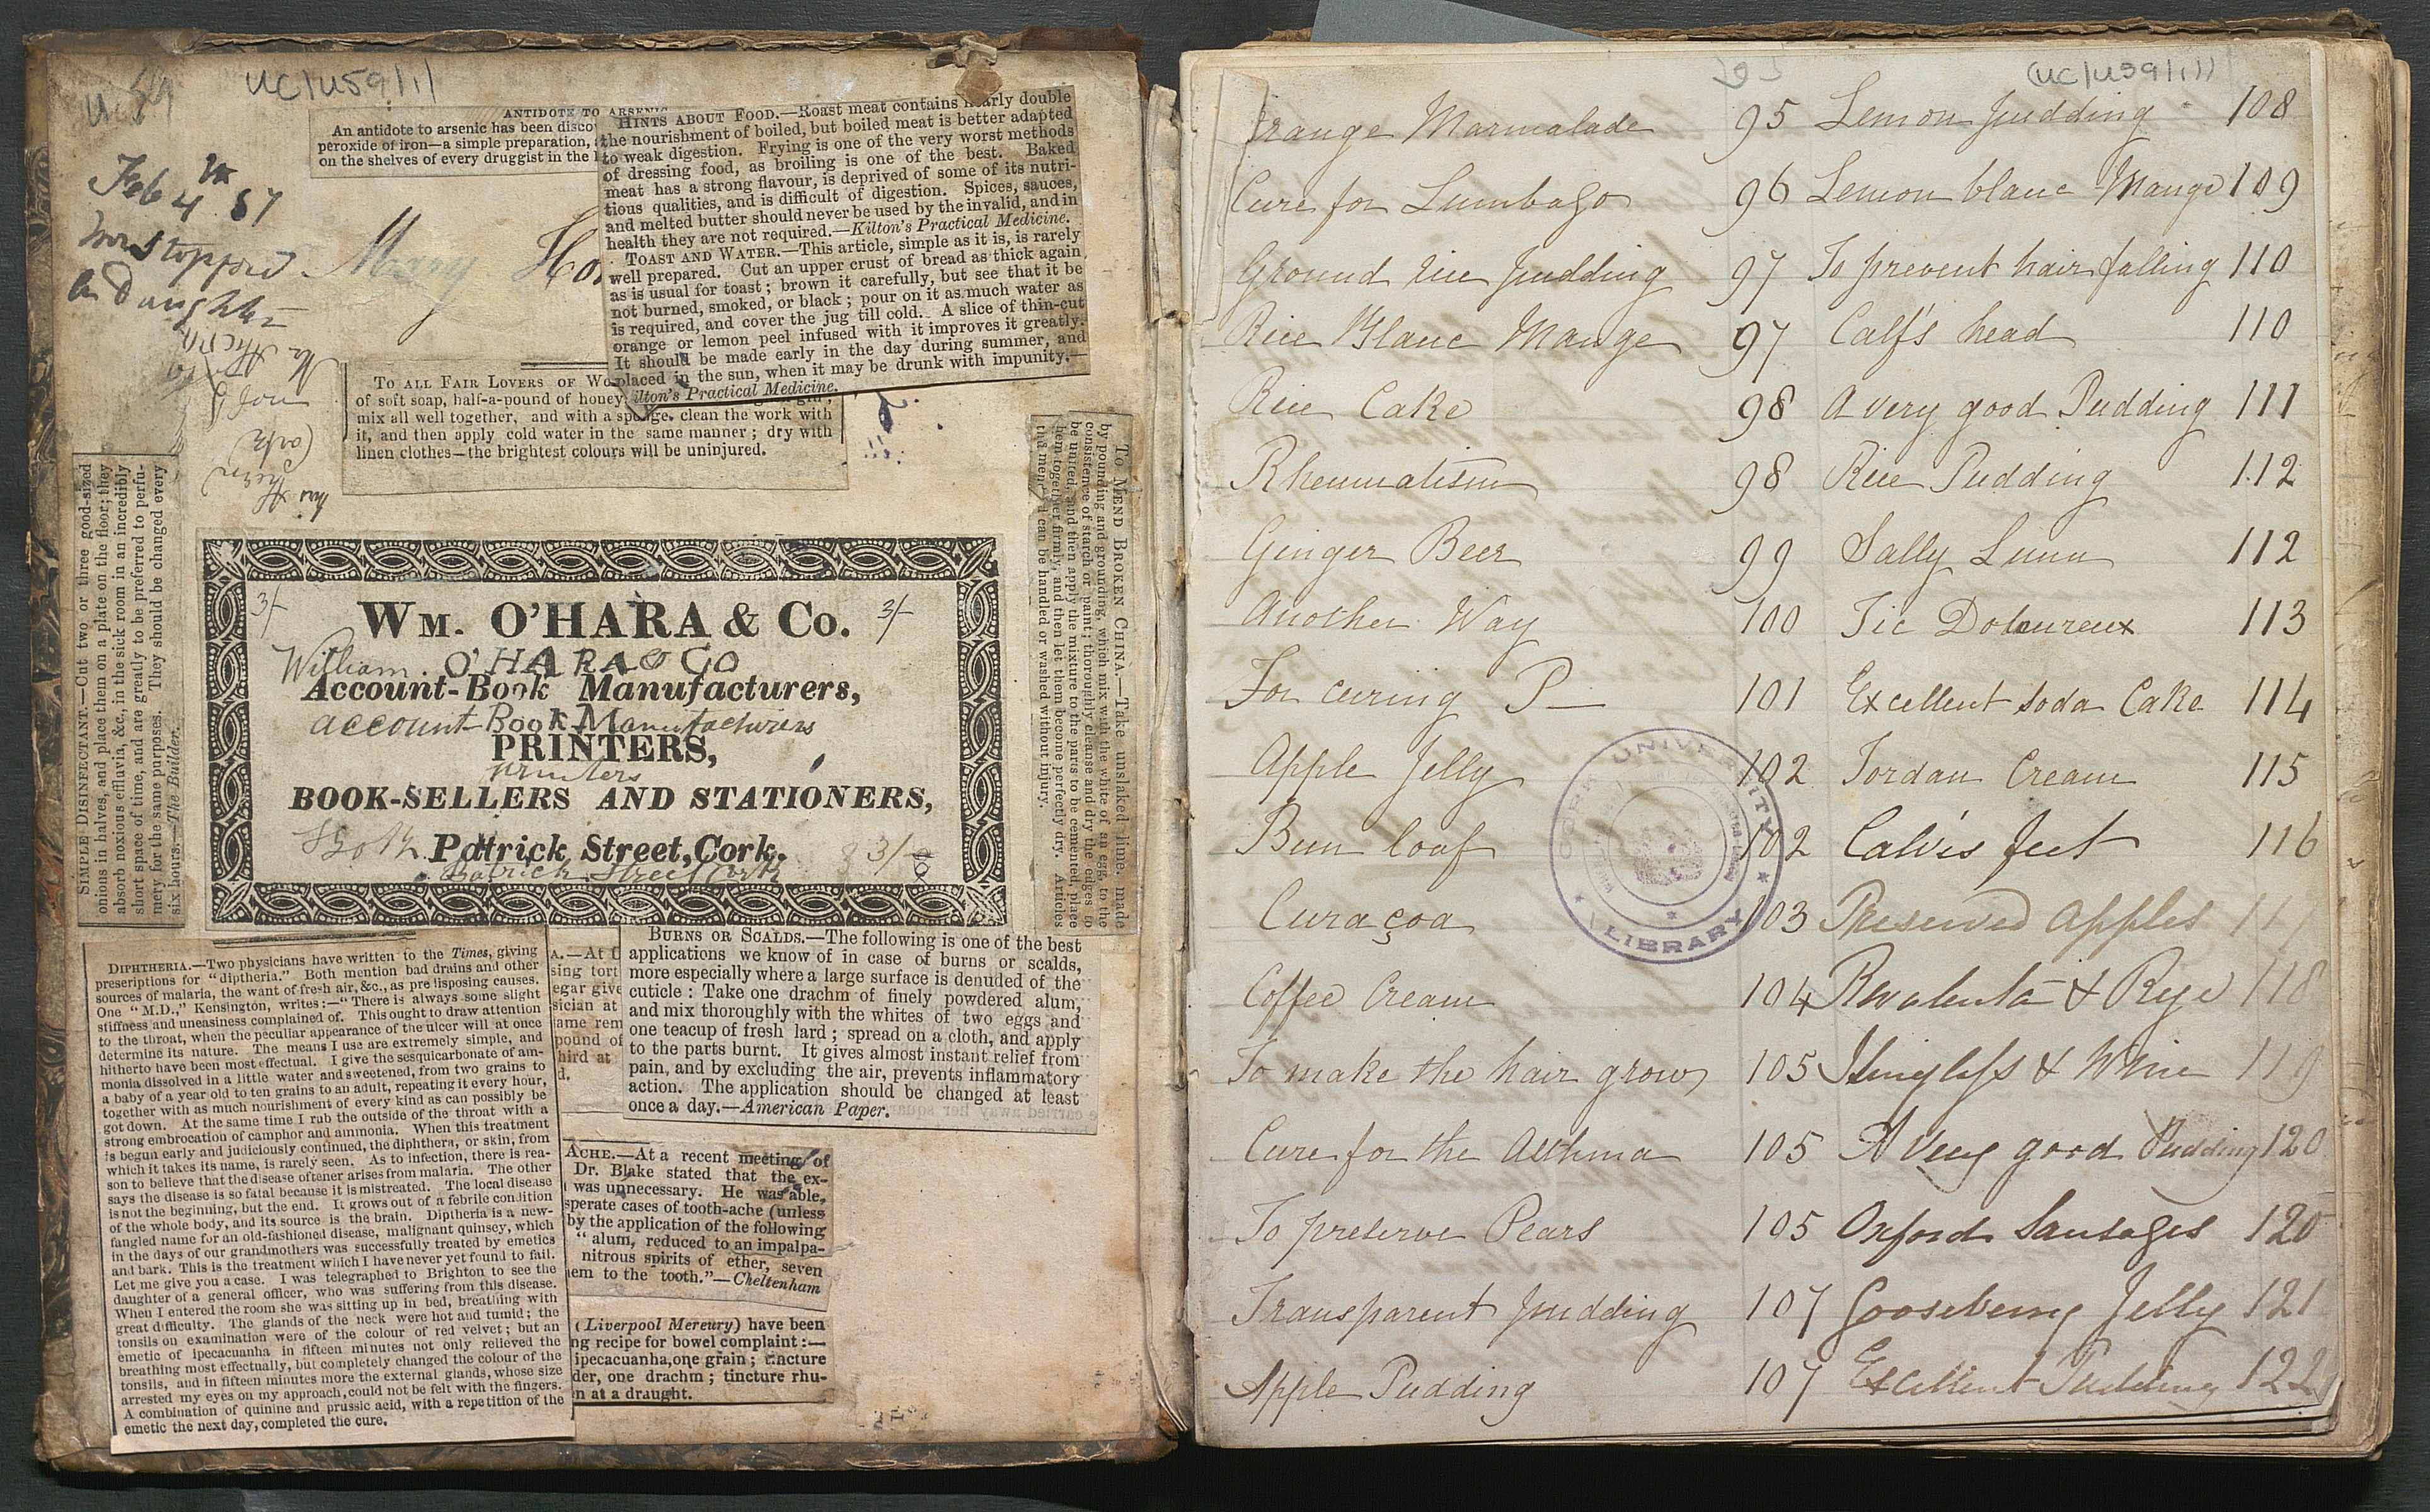 UC/U59/1/
ANTIDOTE TO ARSENIC
An antidote to arsenic has been disco
peroxide of iron—a simple preparation,
on the shelves of every druggist in the
HINTS ABOUT FOOD.—Roast meat contains nearly double
the nourishment of boiled, but boiled meat is better adapted
to weak digestion. Frying is one of the very worst methods
of dressing food, as broiling is one of the best. Baked
meat has a strong flavour, is deprived of some of its nutri-
tious qualities, and is difficult of digestion. Spices, sauces,
and melted butter should never be used by the invalid, and in
health they are not required.—Kilton's Practical Medicine.
TOAST AND WATER.—This article, simple as it is, is rarely
well prepared. Cut an upper crust of bread as thick again
as is usual for toast; brown it carefully, but see that it be
not burned, smoked, or black; pour on it as much water as
is required, and cover the jug till cold. A slice of thin-cut
orange or lemon peel infused with it improves it greatly.
It should be made early in the day during summer, and
placed in the sun, when it may be drunk with impunity.—
ilton's Practical Medicine.
Feb 4th 57
Mrs Stopford
& Daughter
Mary Ho
TO ALL FAIR LOVERS OF WO
of soft soap, half-a-pound of honey,
mix all well together, and with a sponge, clean the work with
it, and then apply cold water in the same manner; dry with
linen clothes—the brightest colours will be uninjured.
SIMPLE DISINFECTANT.—Cut two or three good-sized
onions in halves, and place them on a plate on the floor; they
absorb noxious effluvia, &c., in the sick room in an incredibly
short space of time, and are greatly to be preferred to perfu-
mery for the same purposes. They should be changed every
six hours.—The Builder.
TO MEND BROKEN CHINA.—Take unslaked lime, made
by pounding and grounding, which mix with the white of an egg, to the
consistence of starch or paint; thoroughly cleanse and dry the edges to
be united, and then apply the mixture to the parts to be cemented, place
them together firmly, and then let them become perfectly dry. Articles
thu mended can be handled or washed without injury.
3/- 3/-
WM. O'HARA & Co.
William O'HARA & CO
Account-Book Manufacturers,
account-Book Manufacturers
PRINTERS,
printers
BOOK-SELLERS AND STATIONERS,
Patrick Street, Cork.
3/-
Patrick Street Cork
DIPHTHERIA.—Two physicians have written to the Times, giving
prescriptions for "diptheria." Both mention bad drains and other
sources of malaria, the want of fresh air, &c., as predisposing causes.
One "M.D.," Kensington, writes:—"There is always some slight
stiffness and uneasiness complained of. This ought to draw attention
to the throat, when the peculiar appearance of the ulcer will at once
determine its nature. The means I use are extremely simple, and
hitherto have been most effectual. I give the sesquicarbonate of am-
monia dissolved in a little water and sweetened, from two grains to
a baby of a year old to ten grains to an adult, repeating it every hour,
together with as much nourishment of every kind as can possibly be
got down. At the same time I rub the outside of the throat with a
strong embrocation of camphor and ammonia. When this treatment
is begun early and judiciously continued, the diphthera, or skin, from
which it takes its name, is rarely seen. As to infection, there is rea-
son to believe that the disease oftener arises from malaria. The other
says the disease is so fatal because it is mistreated. The local disease
is not the beginning, but the end. It grows out of a febrile condition
of the whole body, and its source is the brain. Diptheria is a new-
fangled name for an old-fashioned disease, malignant quinsey, which
in the days of our grandmothers was successfully treated by emetics
and bark. This is the treatment which I have never yet found to fail.
Let me give you a case. I was telegraphed to Brighton to see the
daughter of a general officer, who was suffering from this disease.
When I entered the room she was sitting up in bed, breathing with
great difficulty. The glands of the neck were hot and tumid; the
tonsils on examination were of the colour of red velvet; but an
emetic of ipecacuanha in fifteen minutes not only relieved the
breathing most effectually, but completely changed the colour of the
tonsils, and in fifteen minutes more the external glands, whose size
arrested my eyes on my approach, could not be felt with the fingers.
A combination of quinine and prussic acid, with a repetition of the
emetic the next day, completed the cure.
A.—At
sing tort
egar give
sician at
ame rem
pound of
hird at
d.
BURNS OR SCALDS.—The following is one of the best
applications we know of in case of burns or scalds,
more especially where a large surface is denuded of the
cuticle: Take one drachm of finely powdered alum,
and mix thoroughly with the whites of two eggs and
one teacup of fresh lard; spread on a cloth, and apply
to the parts burnt. It gives almost instant relief from
pain, and by excluding the air, prevents inflammatory
action. The application should be changed at least
once a day.—American Paper.
ACHE.—At a recent meeting of
Dr. Blake stated that the ex-
was unnecessary. He was able,
sperate cases of tooth-ache (unless
by the application of the following
"alum, reduced to an impalpa-
nitrous spirits of ether, seven
em to the tooth."—Cheltenham
(Liverpool Mercury) have been
ng recipe for bowel complaint:—
ipecacuanha, one grain; tincture
der, one drachm; tincture rhu-
n at a draught.
(UC/U59/1/)
range Marmalade 95
Cure for Lumbago 96
Ground rice pudding 97
Rice Blanc Mange 97
Rice Cake 98
Rheumatism 98
Ginger Beer 99
Another Way 100
For curing P— 101
Apple Jelly 102
Bun loaf 102
Curaçoa 103
Coffee Cream 104
To make the hair grow 105
Cure for the Asthma 105
To preserve Pears 105
Transparent pudding 107
Apple Pudding 107
Lemon pudding 108
Lemon blanc Mange 109
To prevent hair falling 110
Calf's head 110
A very good Pudding 111
Rice Pudding 112
Sally Lunn 112
Tic Doloureux 113
Excellent soda Cake 114
Jordan Cream 115
Calves feet 116
Preserved apples 117
Revalenta & Rye 118
Isinglass & Wine 119
A very good Pudding 120
Oxford Sausages 120
Gooseberry Jelly 121
Excellent Pudding 122
CORK UNIVERSITY
LIBRARY